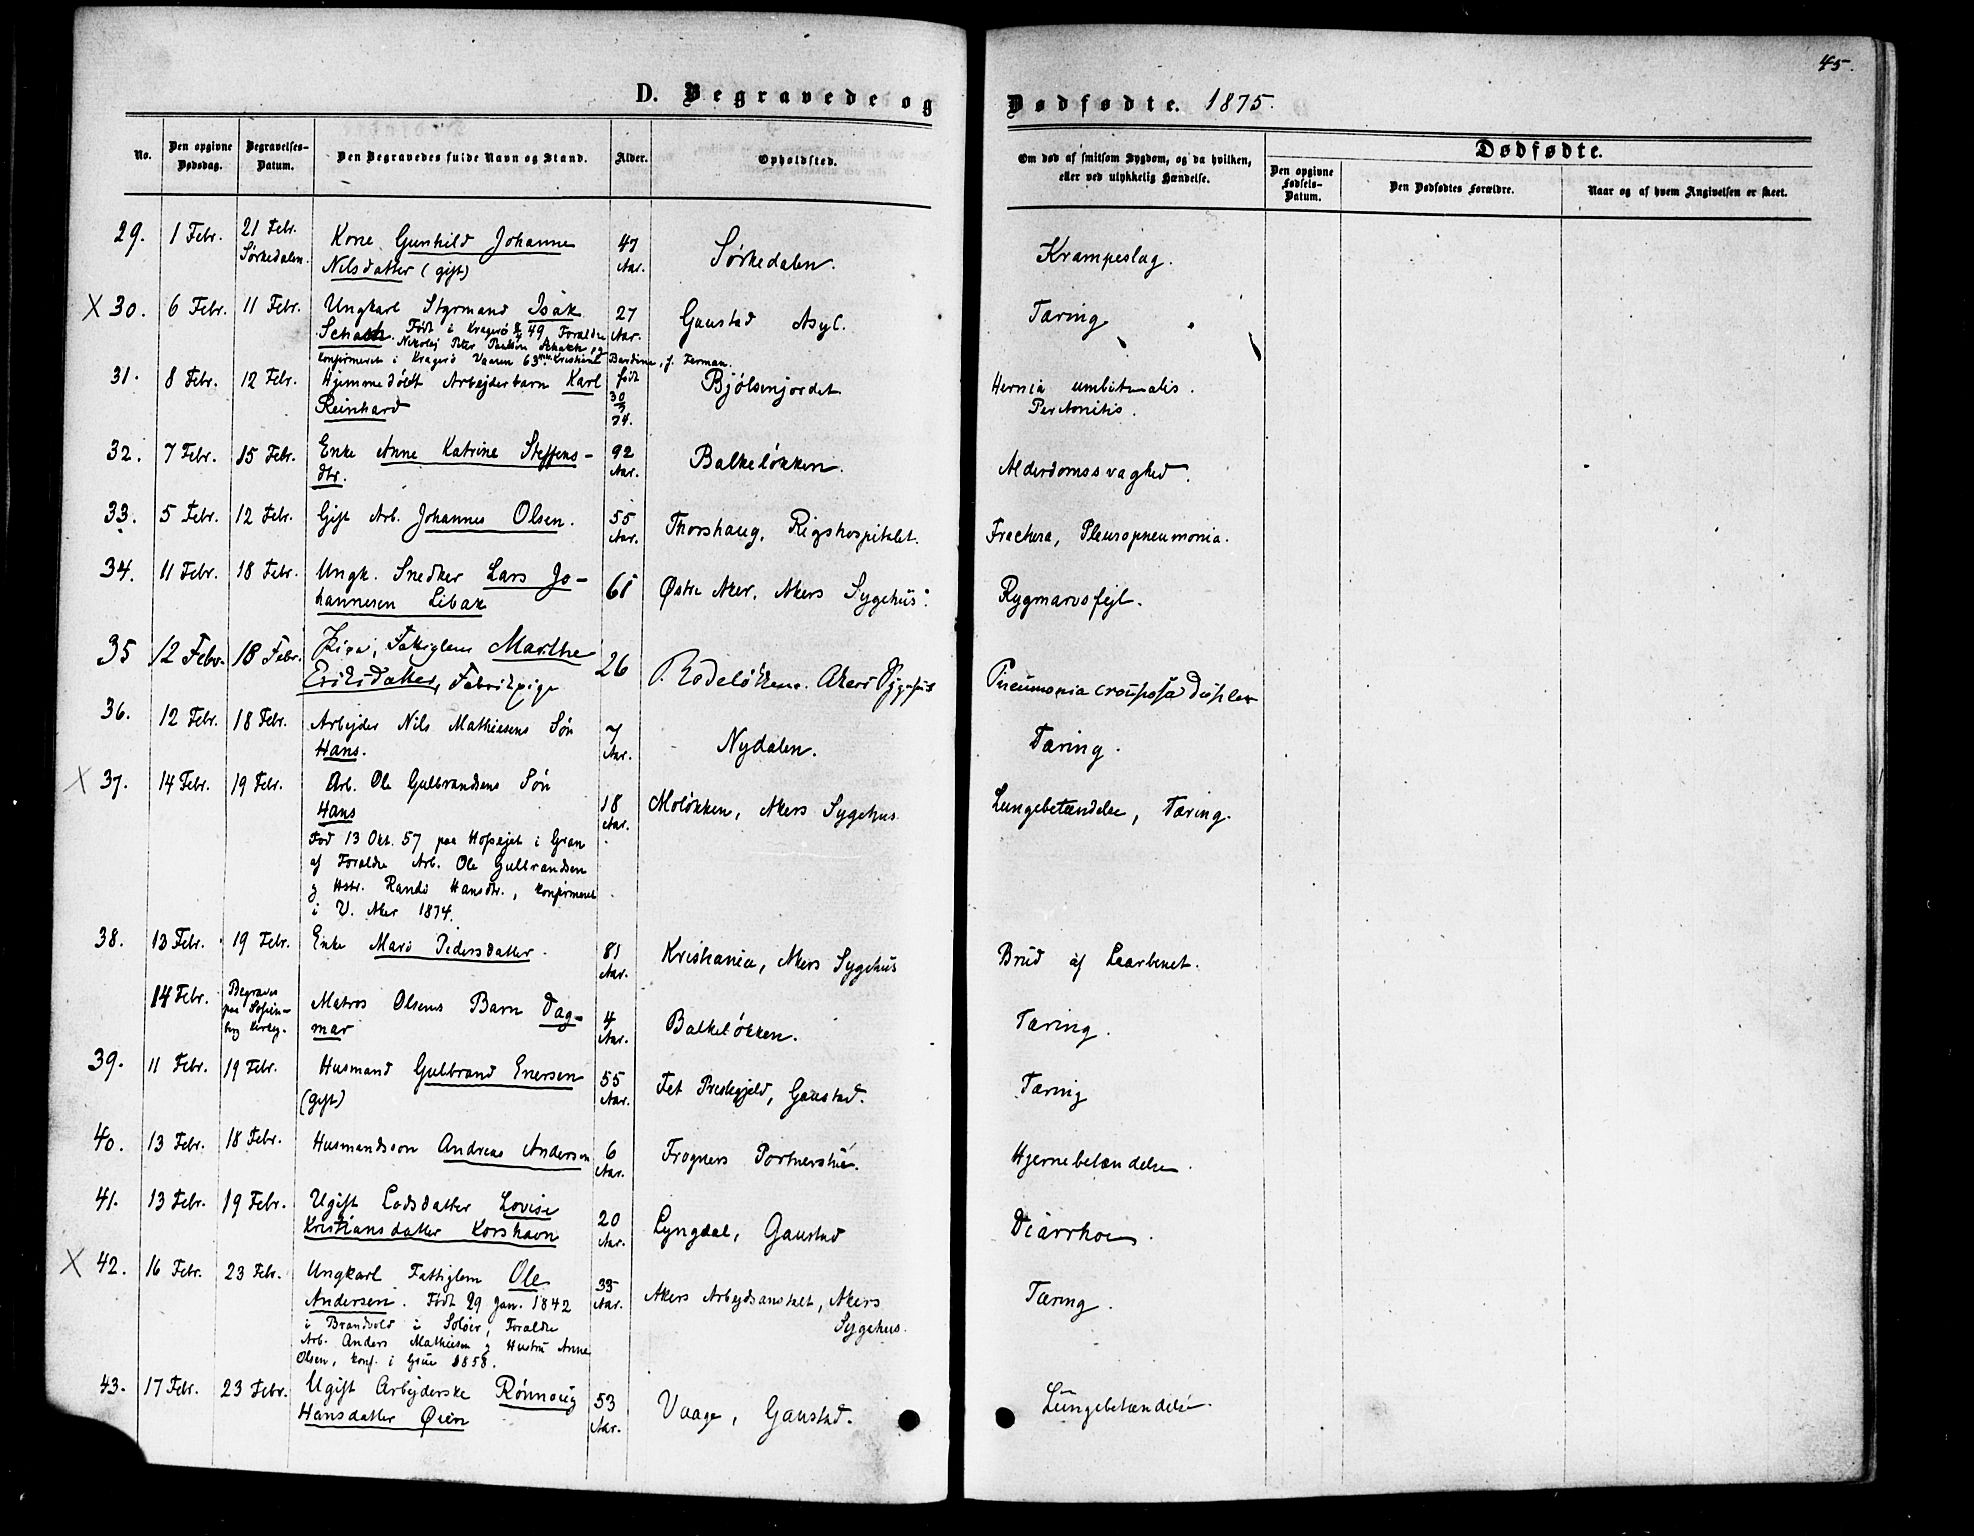 45.
D. Begravede og Dødfødte. 1875.
No.
Den opgivne Dødsdag.
Begravelses-Datum.
Den Begravedes fulde Navn og Stand.
Alder.
Opholdsted.
Om død af smitsom Sygdom, og da hvilken,
eller ved ulykkelig Hændelse.
Dødfødte.
Den opgivne Fødsels-Datum.
Den Dødfødtes Forældre.
Naar og af hvem Angivelsen er skeet.
29. 1 Febr. 21 Febr. Kone Gunhild Johanne 47 Sørkedalen. Krampeslag.
Sørkedalen. Nilsdatter (gift) Aar.
X 30. 6 Febr. 11 Febr. Ungkarl Styrmand Isak 27 Gaustad Asyl. Tæring
Schach. Født i Kragerö 49. Foraldre Aar.
Nikolaj Peter Schach og
konfirmeret i Kragerö Vaaren 63. Bardine, f. Ferman.
31. 8 Febr. 12 Febr. Hjemmedöbt Arbejderbarn Karl født Bjölsenjordet. Hernia umbilicalis.
Reinhard 30 74. Peritonitis.
32. 7 Febr. 15 Febr. Enke Anne Katrine Steffens- 92 Balkelökken. Alderdomssvaghed.
dtr. Aar.
33. 5 Febr. 12 Febr. Gift Arb. Johannes Olsen. 55 Thorshaug, Rigshospitalet. Fractura, Pleuropneumonia.
Aar.
34. 11 Febr. 18 Febr. Ungk. Snedker Lars Jo- 61 Østre Aker, Akers Sygehus. Rygmarvsfejl.
hannesen Libak
35 12 Febr. 18 Febr. Pige, Fattiglem Marthe 26 Rodelökken. Akers Sygehus Pneumonia crouposa duplex
Eriksdatter, Fabrikpige
36. 12 Febr. 18 Febr. Arbejder Nils Mathiesens Sön 7 Nydalen. Tæring.
Hans. Aar.
X 37. 14 Febr. 19 Febr. Arb. Ole Gulbrandsens Sön 18 Molökken, Akers Sygehus Lungebetændelse, Tæring.
Hans Aar.
Fød 13 Okt. 57 paa Hofsejet i Gran
af Foraldre Arb. Ole Gulbrandsen
og Hstr. Randi Hansdtr., konfirmeret
i V. Aker 1874.
38. 13 Febr. 19 Febr. Enke Mari Pedersdatter. 81 Kristiania, Akers Sygehus Brud af Laarbenet.
Aar.
14 Febr. Begraves Matros Olsens Barn Dag- 4 Balkelökken. Tæring.
paa Sofien- mar Aar.
berg Kirkeg.
39. 11 Febr. 19 Febr. Husmand Gulbrand Enersen 55 Fet Prestegjeld, Gaustad. Tæring
(gift) Aar.
40. 13 Febr. 18 Febr. Husmandssön Andreas Andersen 6 Frogners Portnerstue. Hjernebetændelse.
Aar.
41. 13 Febr. 19 Febr. Ugift Lodsdatter Lovise 20 Lyngdal, Gaustad Diarrhoe.
Kristiansdatter Korshavn Aar.
X 42. 16 Febr. 23 Febr. Ungkarl Fattiglem Ole 33 Akers Arbejdsanstalt, Akers Tæring.
Andersen. Født 29 Jan. 1842 Aar. Sygehus.
i Brandvold i Solöer, Foraldre
Arb. Anders Mathiesen og Hustru Anne
Olsen, konf. i Grue 1858.
43. 17 Febr. 23 Febr. Ugift Arbejderske Rönnaug 53 Vaage, Gaustad. Lungebetændelse.
Hansdatter Øien Aar.